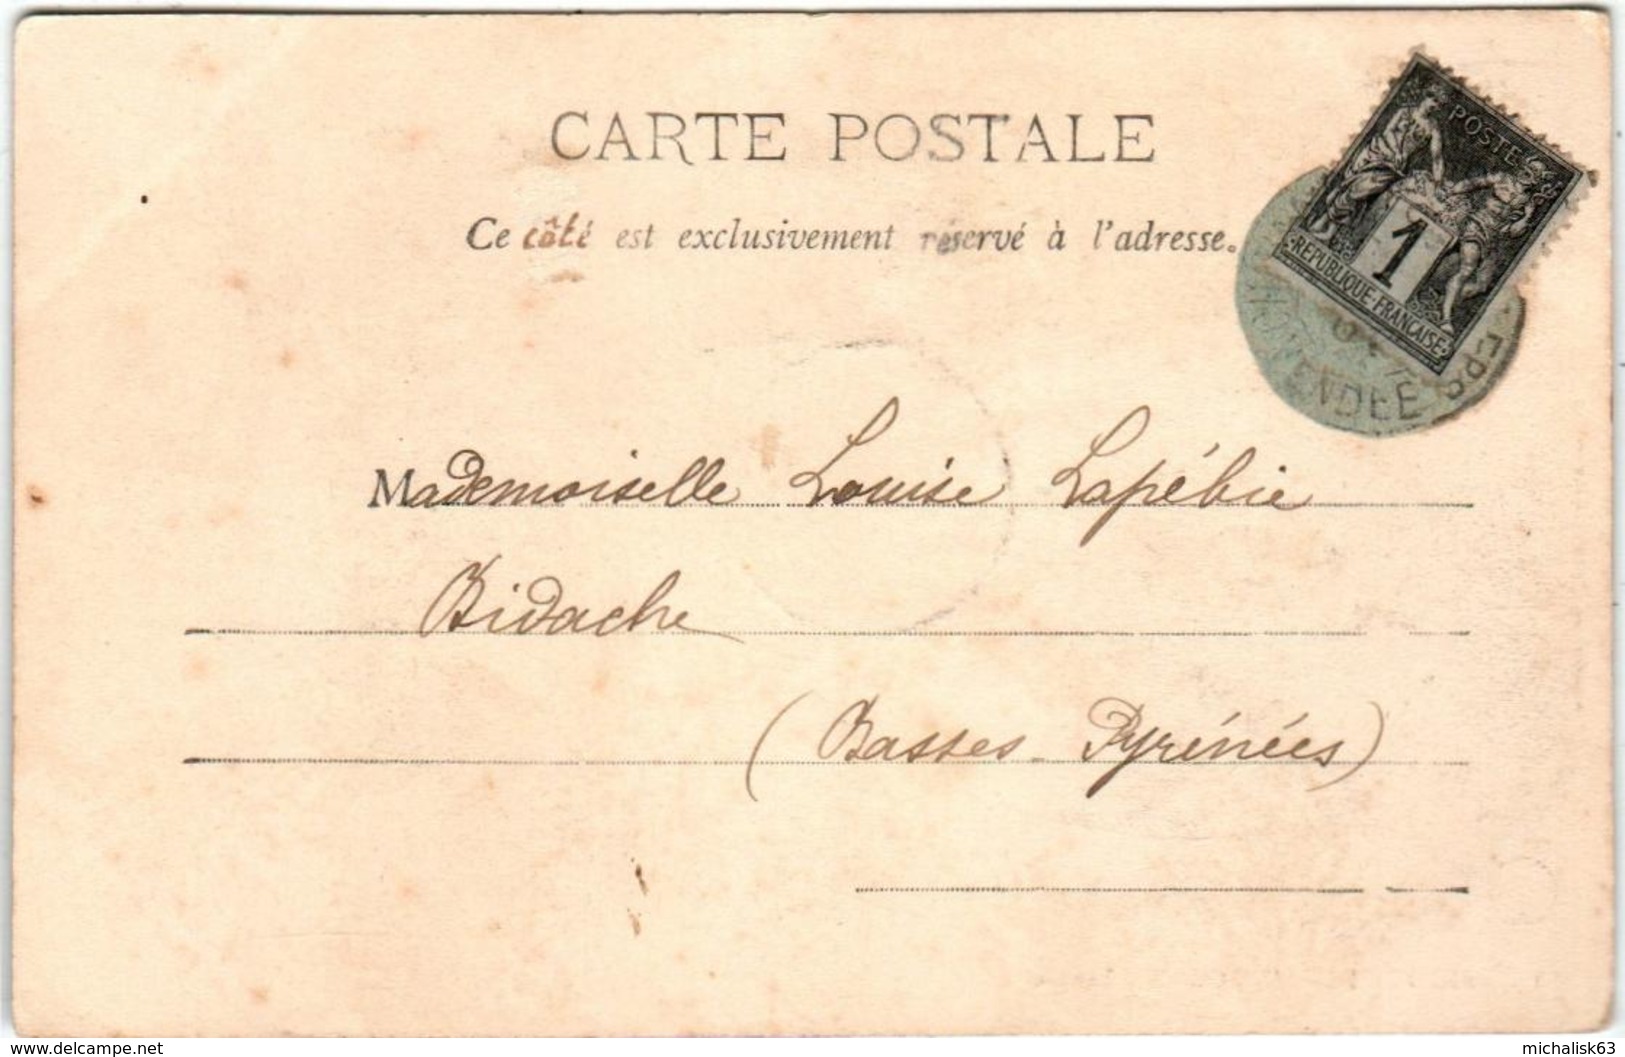 CARTE POSTALE
Ce côté est exclusivement réservé à l'adresse.
POSTE
1
REPUBLIQUE FRANÇAISE
VENDÉE
Mademoiselle Louise Lapébie
Bidache
(Basses-Pyrénées)
www.delcampe.net
michalisk63